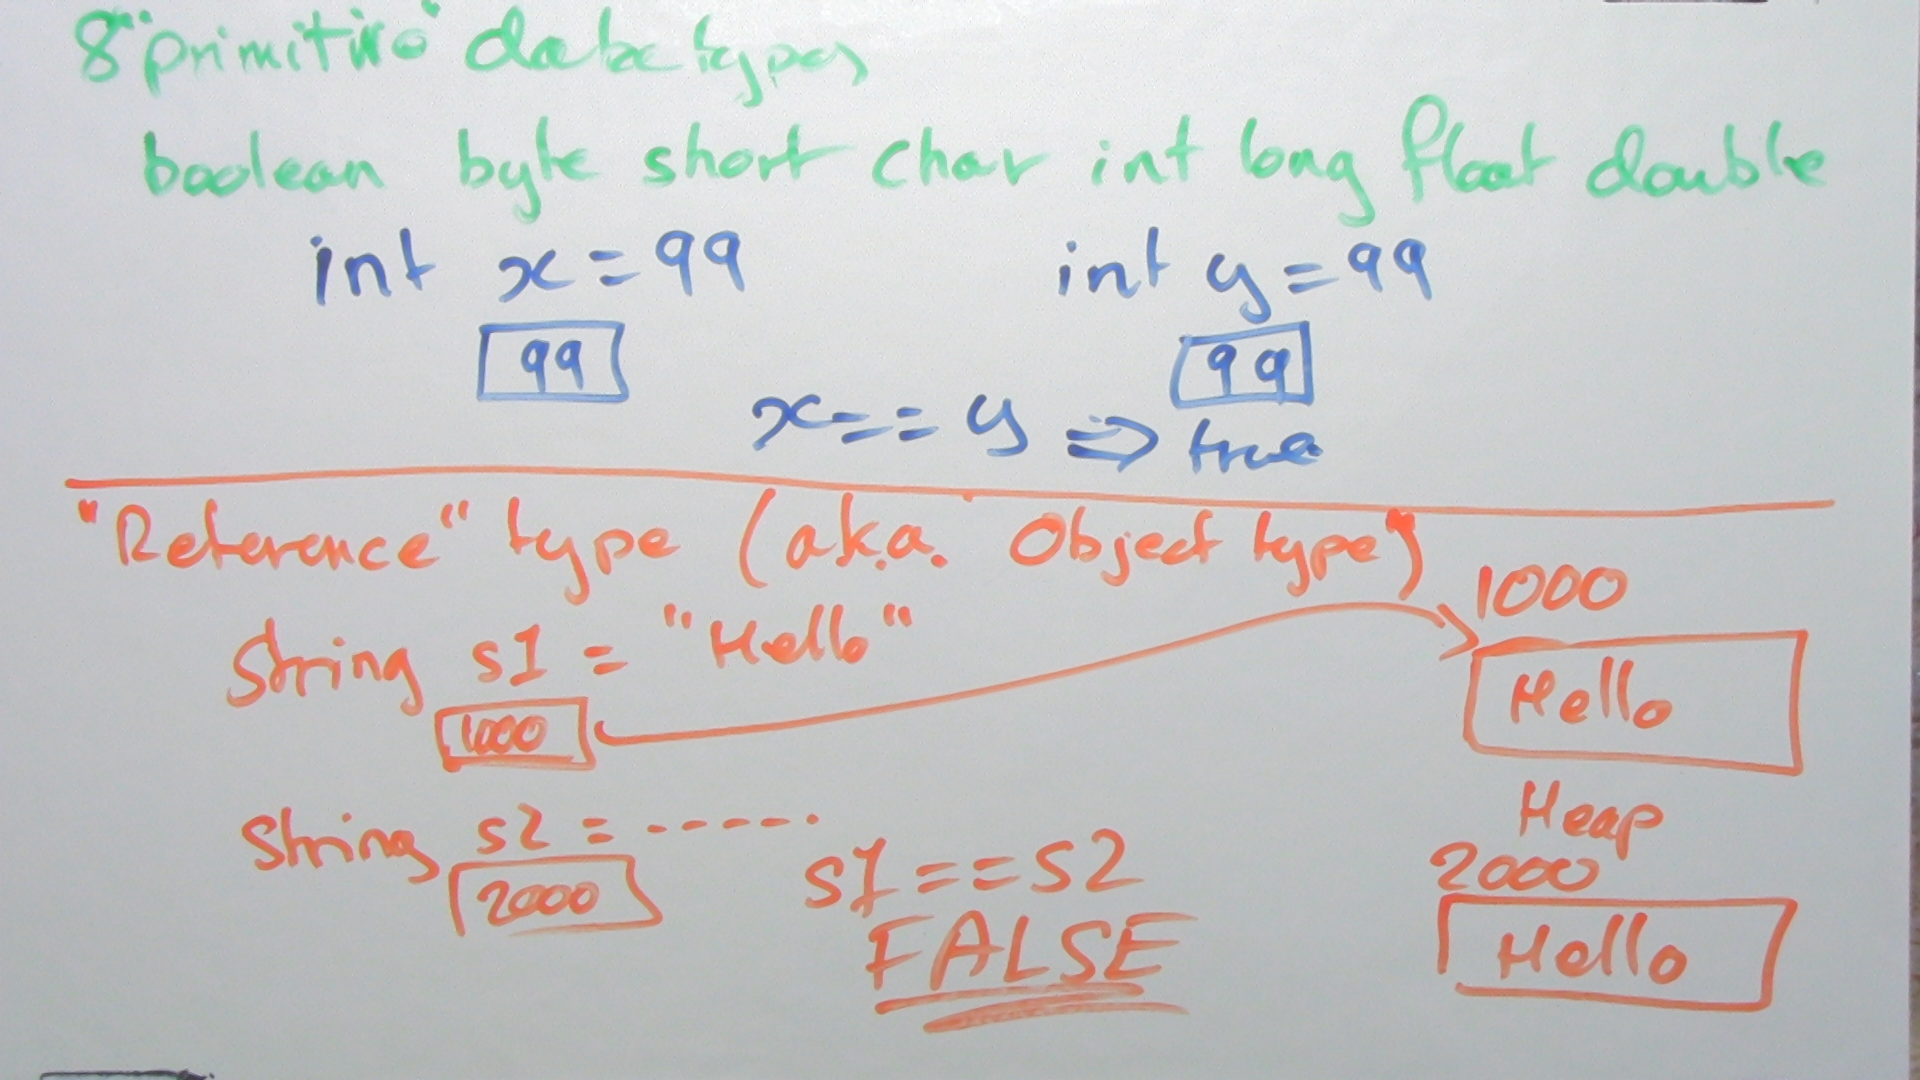 8 "primitive" data types
boolean byte short char int long float double
int x = 99 int y = 99
99 99
x == y => true
"Reference" type (aka. Object type)
1000
String s1 = "Hello"
1000 Hello
Heap
String s2 = -----.
2000 2000
s1 == s2
FALSE Hello